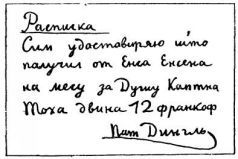 Расписка
Сим удаставиряю што
получил от Енса Енсена
на месу за Душу Каптна
Тоха двина 12 франкоф
Пит Дингль